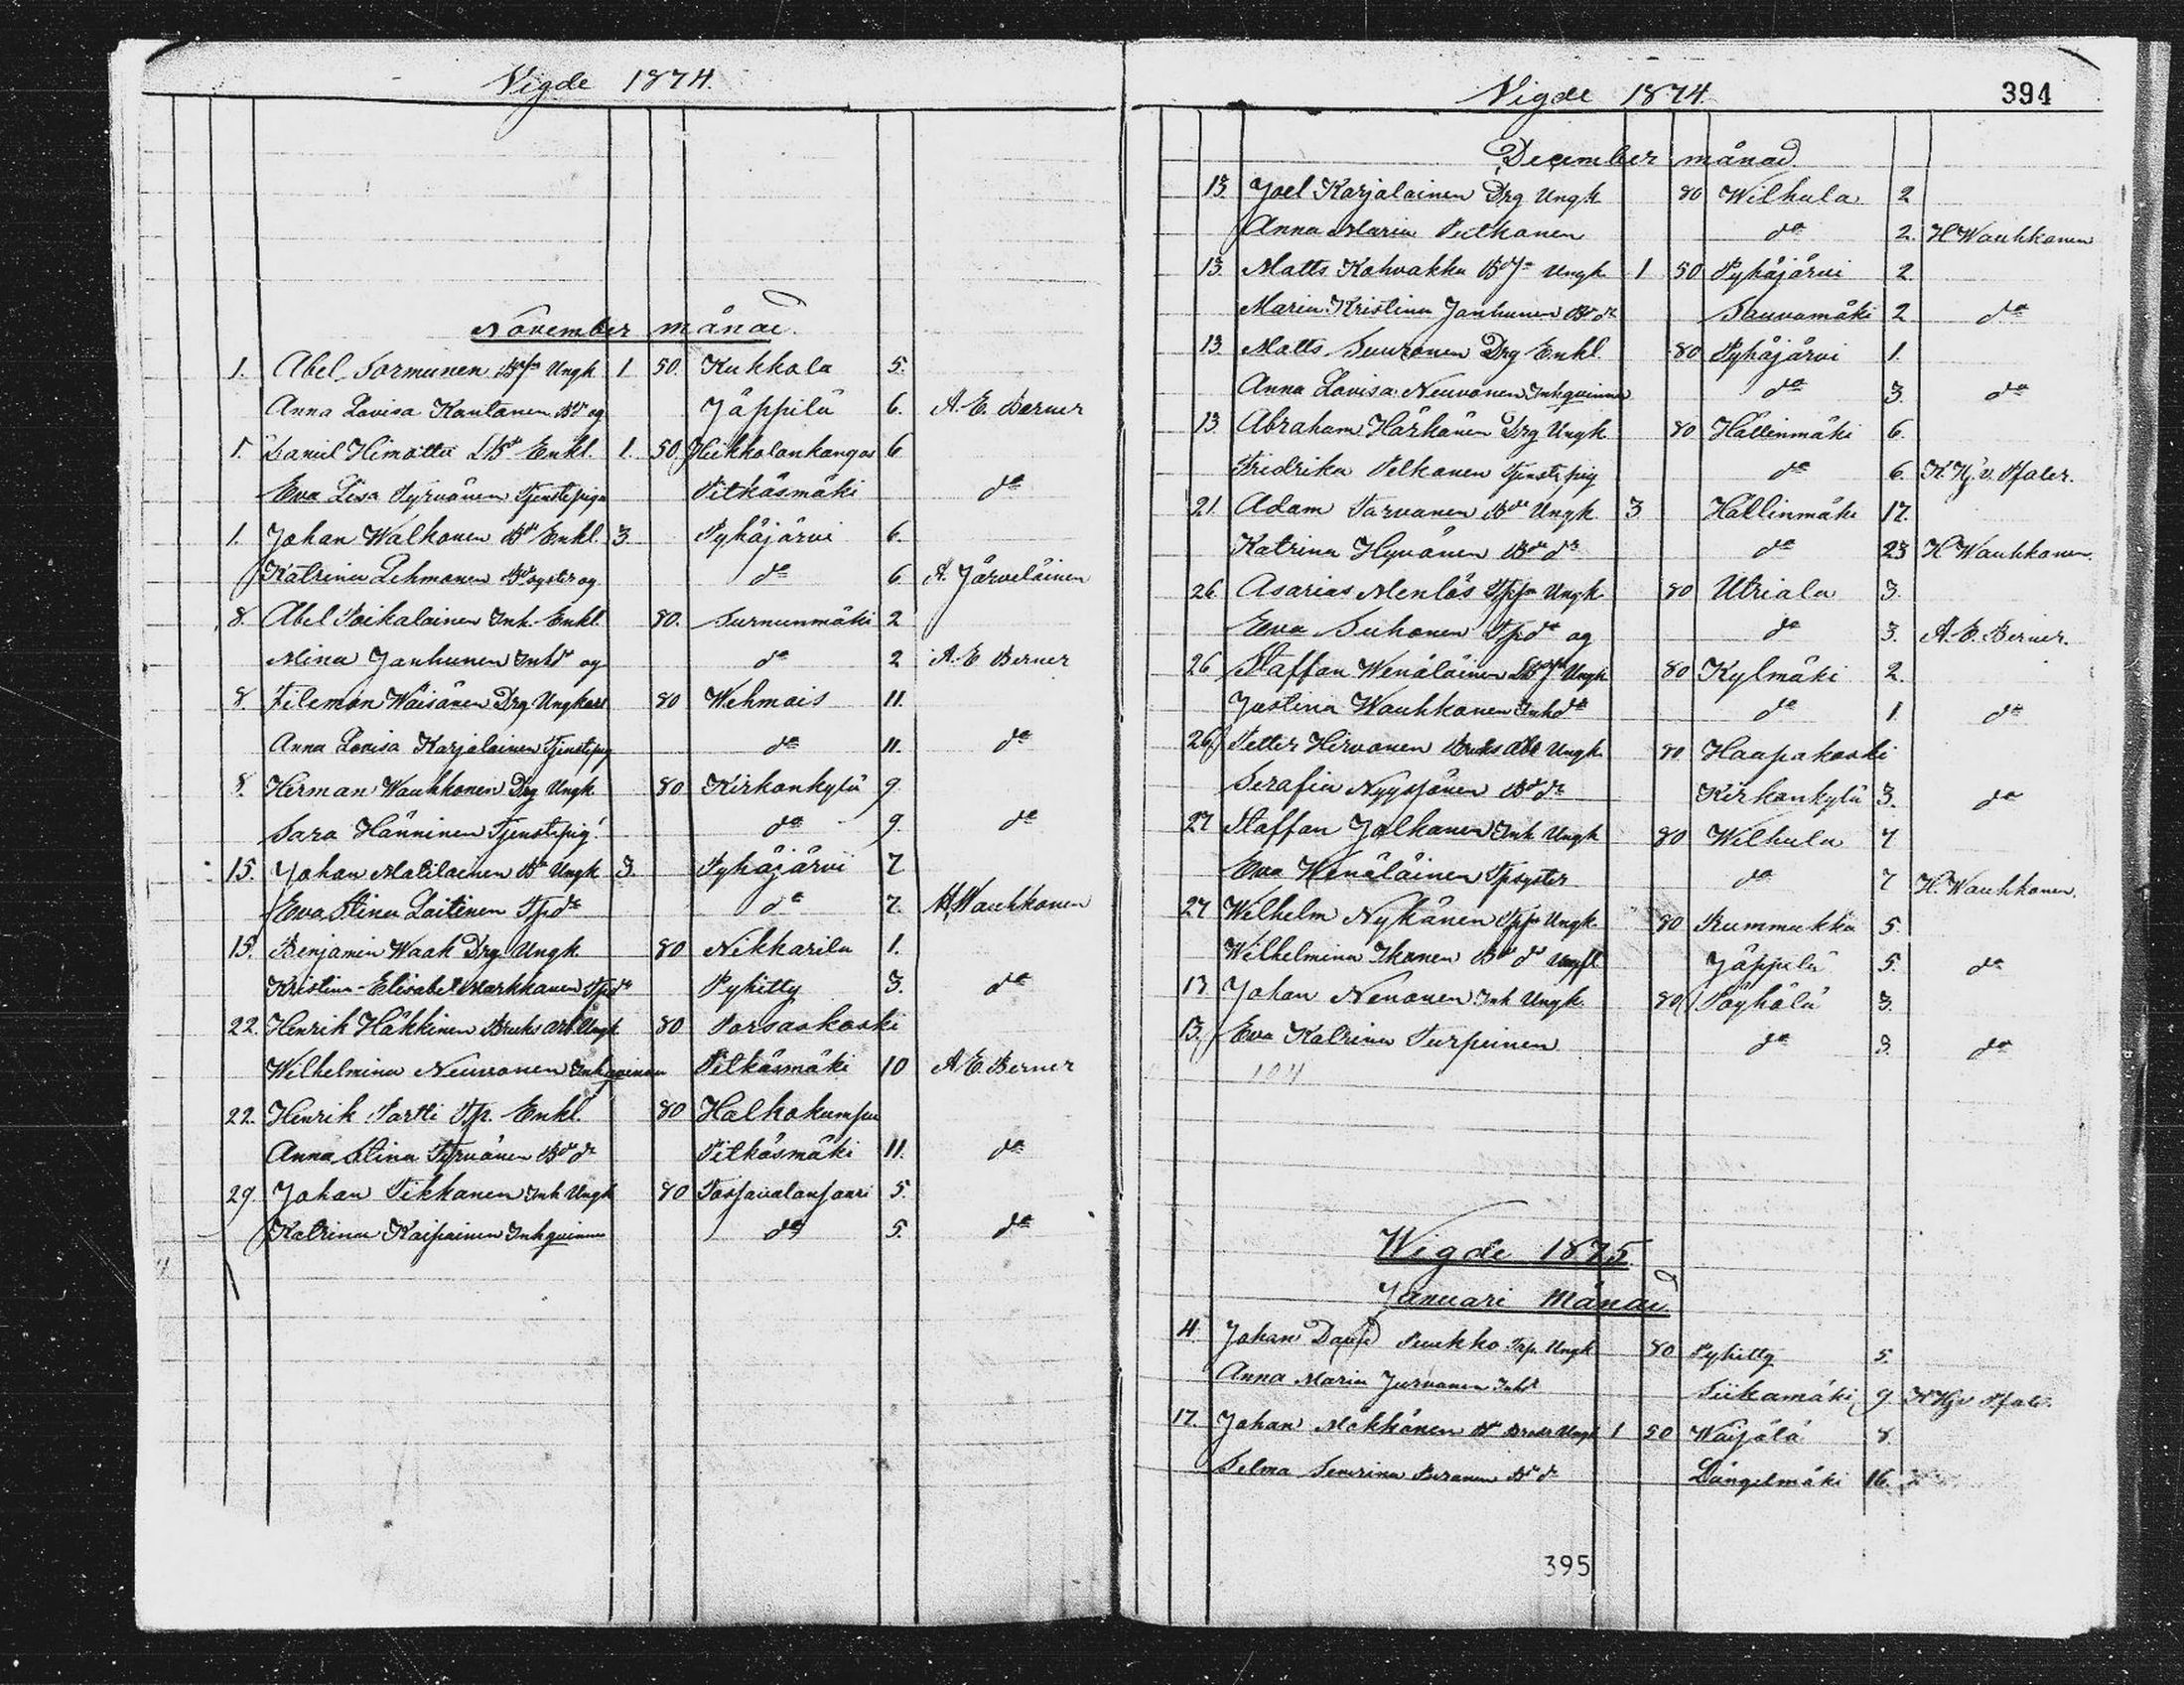 Vigde 1874.
November månad.
1. Abel Sormunen Bdsn Ungk 1 50. Kukkola 5.
Anna Lovisa Kautanen Bdr og Jäppilä 6. A. E. Berner
1. Daniel Himotta LBd Enkl. 1. 50 Heikkolankangas 6
Eva Lisa Tyrvänen Tjenstepiga Pitkäsmäki do
1. Johan Walkonen Bd Enkl. 3. Pyhäjärvi 6.
Katrina Lehmonen Bdsyster og do 6 A. Järveläinen
8. Abel Poikalainen Inh. Enkl. 80. Surnunmäki 2
Mina Janhunen Inhdr og do 2 A. E Berner
8. Filemon Wäisänen Drg Ungkarl 80 Wehmais 11.
Anna Lovisa Karjalainen Tjenstepig do 11. do
8. Herman Wauhkonen Drg Ungk. 80 Kirkonkylä 9.
Sara Hänninen Tjenstepig. do 9. do
15. Johan Matilainen Bd Ungk 3. Pyhäjärvi 7
Eva Stina Laitinen Tpdr do 7. H. Wauhkonen
15. Benjamin Waak Drg Ungk. 80 Nikkarila 1.
Kristina Elisabet Markkanen Tpdr Pyhitty 3. do
22. Henrik Häkkinen Bruks arb. Ungk 80 Porsaskoski
Wilhelmina Neuvonen Inhqvinna Pitkäsmäki 10 A E. Berner
22. Henrik Partti Tp. Enkl. 80 Halkokumpu
Anna Stina Tyrvänen Bddr Pitkäsmäki 11. do
29. Johan Tikkanen Inh Ungk 80 5.
Katrina Kaipainen Inhqvinna do 5. do
Vigde 1874. 394
December månad.
13. Joel Karjalainen Drg Ungk 80 Wilhula 2
Anna Maria Putkonen do 2. H Wauhkonen
13. Matts Kohvakka Bdsn Ungk 1 50 Pyhäjärvi 2
Maria Kristina Janhunen Bddr Sauvamäki 2 do
13. Matts Suuronen Drg Enkl. 80 Pyhäjärvi 1.
Anna Lovisa Neuvonen Inhqvinna do 3. do
13. Abraham Härkänen Drg Ungk 80 Hällinmäki 6.
Fredrika Pelkonen Tjenstepig do 6. K. Hj. v. Pfaler.
21. Adam Tarvanen Bde Ungk. 3 Hällinmäki 17.
Katrina Hyvönen Bddr do 23 H Wauhkonen.
26. Asarias Menlös Tpsn Ungk. 80 Utriala 3.
Eeva Suhonen Tpdr og do 3. A. E. Berner.
26 Staffan Wenäläinen Ungk 80 Kylmäki 2.
Justina Wauhkonen Inhdr do 1. do
26. Petter Hirvonen Bruks Arb Ungk 80 Haapakoski
Serafia Nyyssönen Bddr Kirkonkylä 3. do
27 Staffan Jalkanen Inh Ungk 80 Wilhula 7
Eva Wenäläinen Tpsyster do 7 H. Wauhkonen.
27 Wilhelm Nykänen Tpsn Ungk 80 Rummukka 5.
Wilhelmina Ikonen Bd dr Jäppilä 5. do
13 Johan Nenonen Inh Ungk. 80 Pöyhölä 3.
13. Eva Katrina Turpeinen do 3. do
104
Wigde 1875.
Januari Månad
4. Johan David Puukko Tzp. Ungk 80 Pyhitty 5.
Anna Maria Jurvanen Inhdr Siikamäki 9. K Hj v Pfaler.
17. Johan Mökkönen Bd Broder Ungk 1 50 Waijälä 8.
Selma Severina Puranen Bddr Längelmäki 16.
395